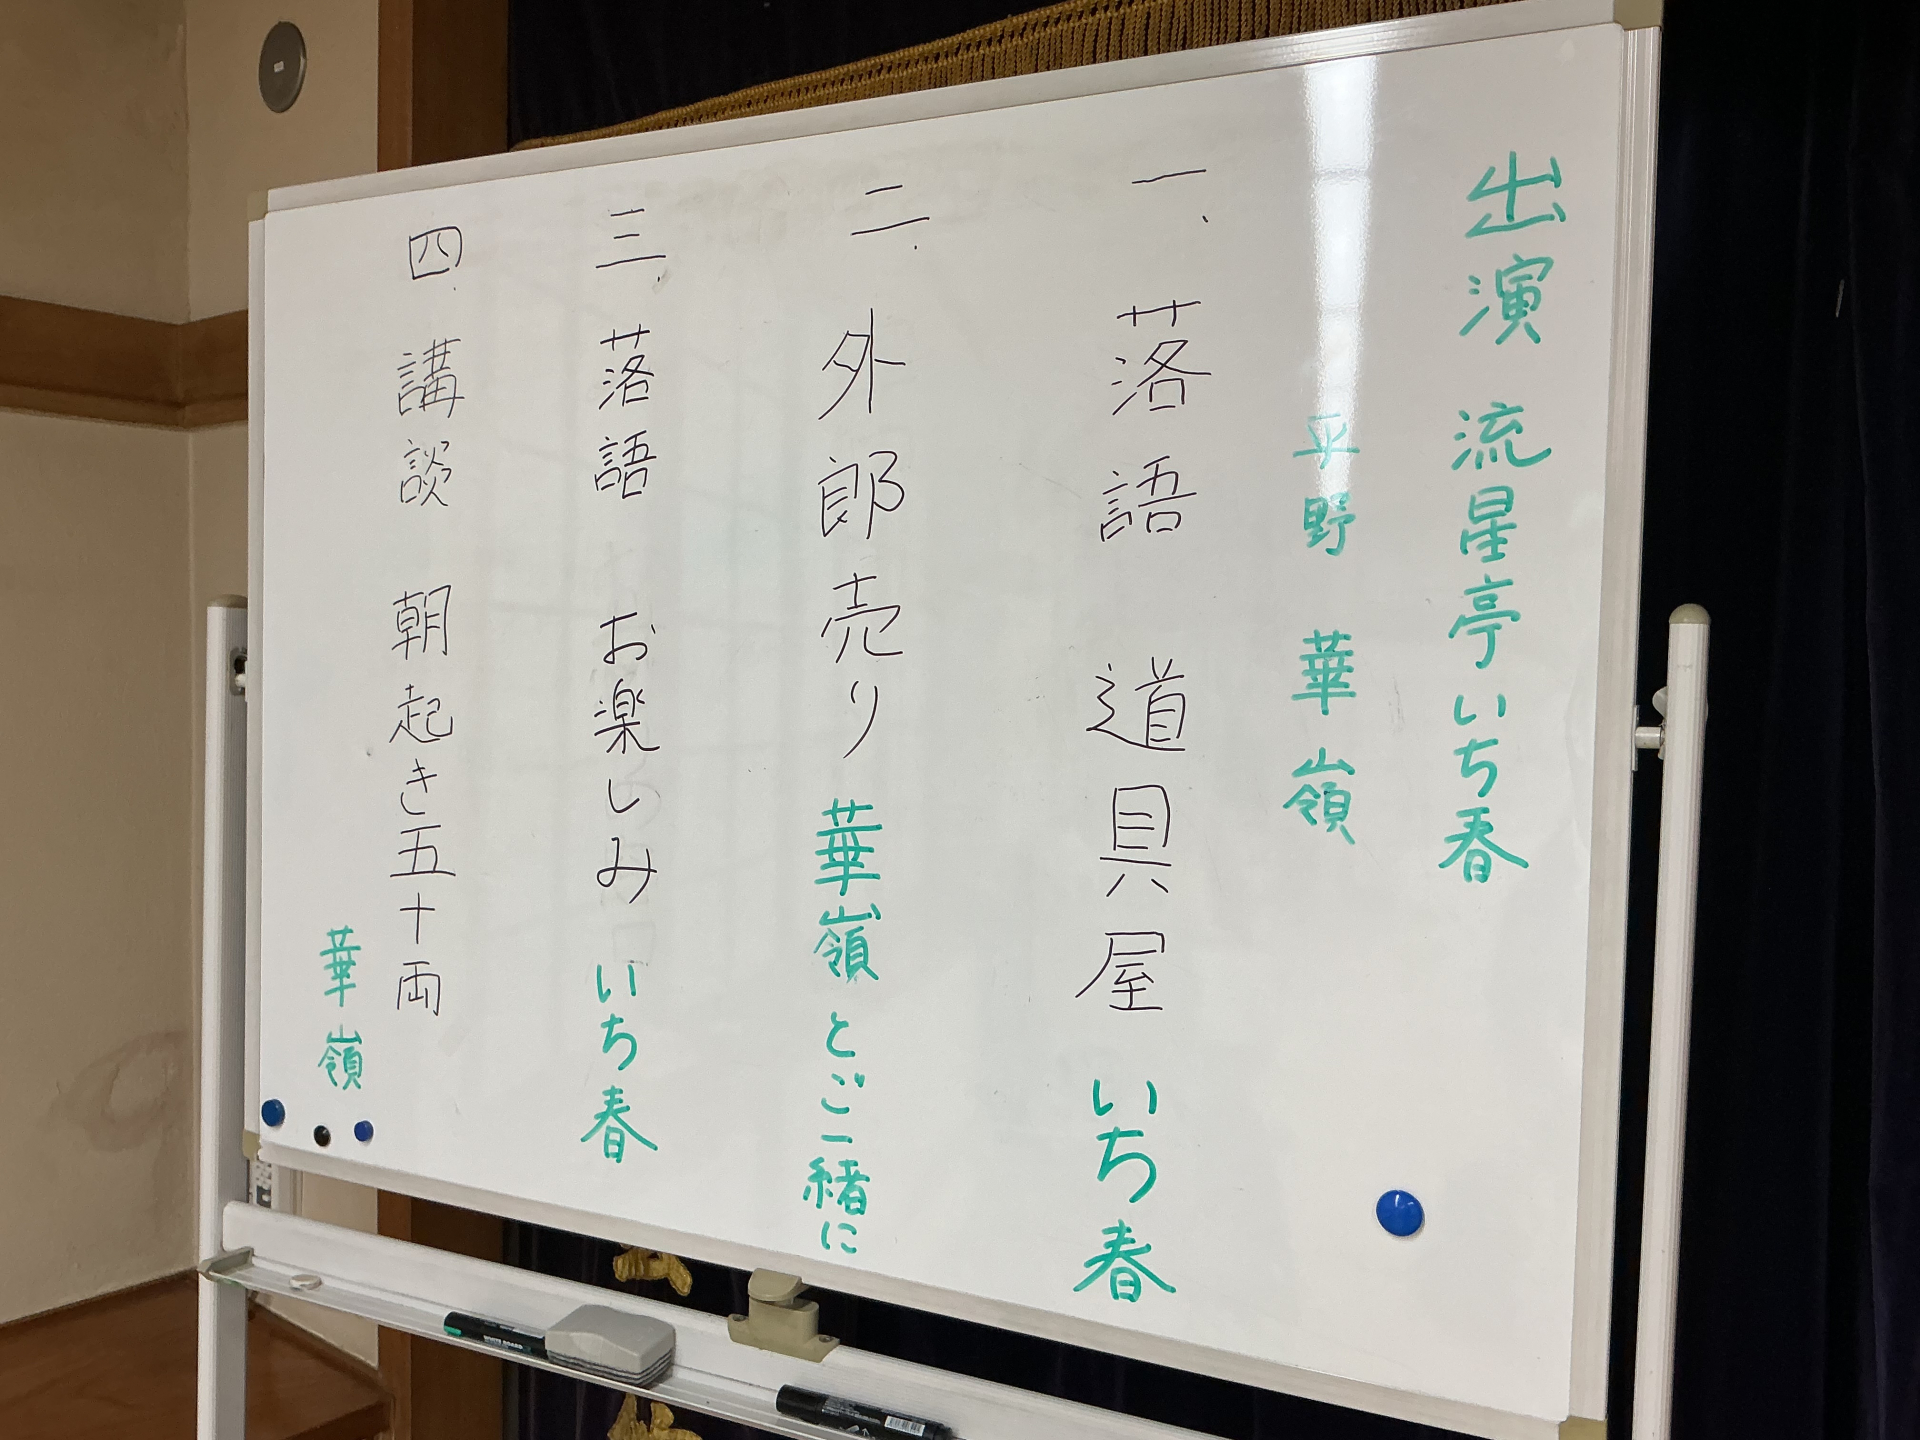 出演 流星亭いち春
平野 華嶺
一、落語 道具屋 いち春
二、外郎売り 華嶺とご一緒に
三、落語 お楽しみ いち春
四、講談 朝起き五十両
華嶺
WHITE BOARD